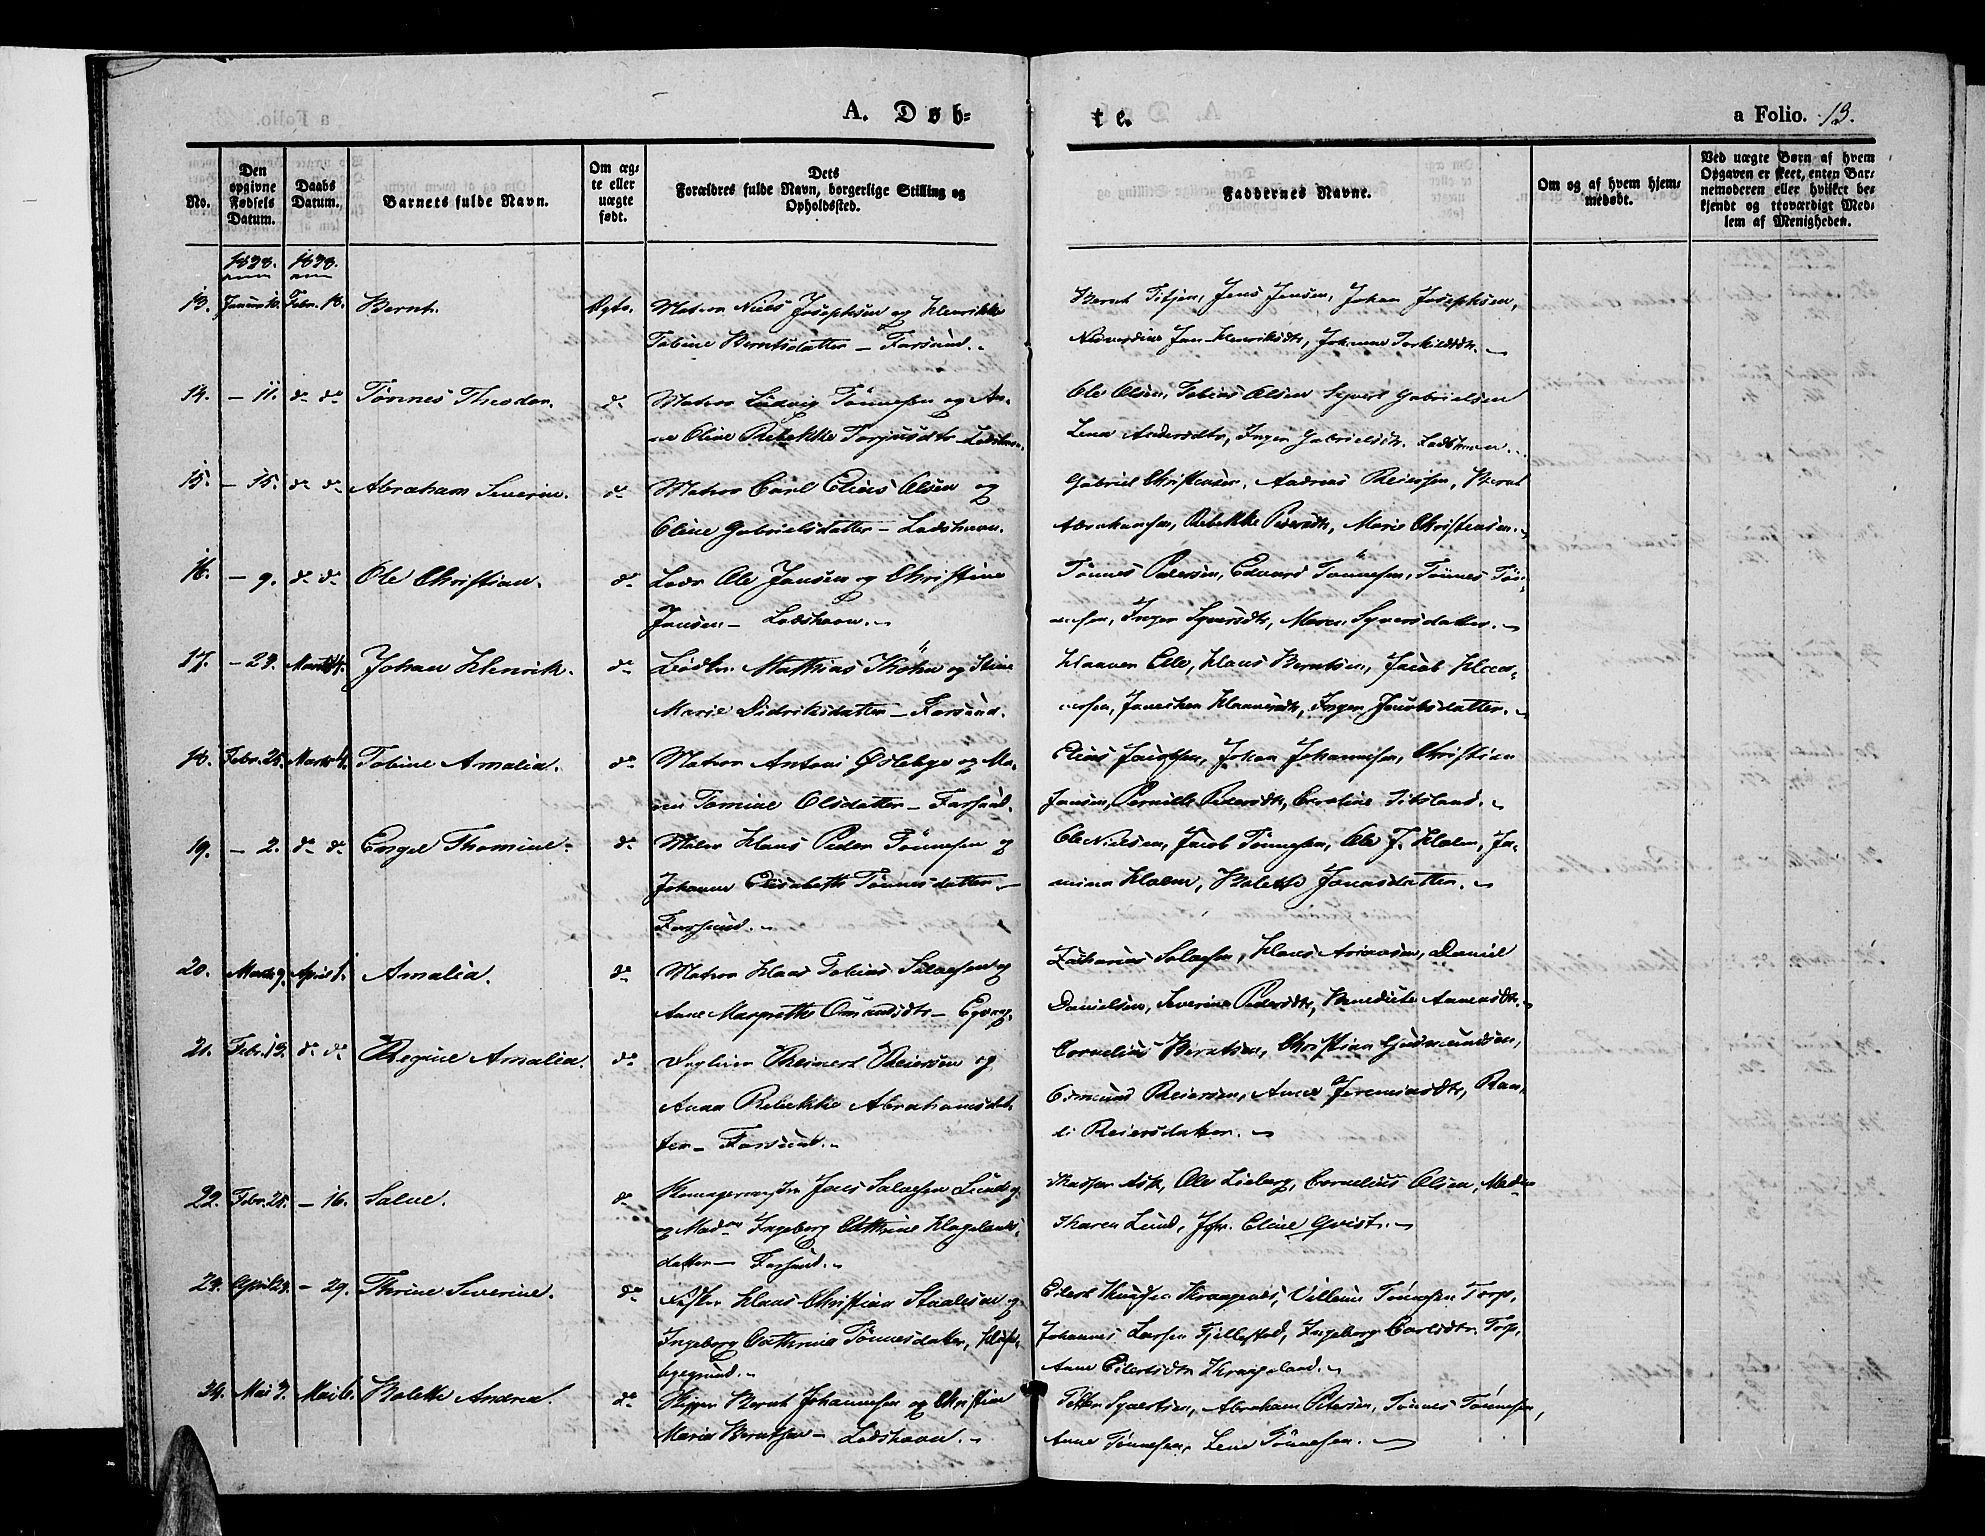 A. Døb=
te.
a Folio. 13.
No.
Den opgivne Fødsels Datum.
Daabs Datum.
Barnets fulde Navn.
Om ægte eller uægte født.
Dets Forældres fulde Navn, borgerlige Stilling og Opholdssted.
Faddernes Navne.
Om og af hvem hjemmedøbt.
Ved uægte Børn af hvem Opgaven er skeet, enten Barnemoderen eller hvilket bekjendt og troværdigt Medlem af Menigheden.
1838. 1838.
13. Januar 10. Febr. 18. Bernt. Ægte. Matros Niels Josephsen og Henrikke
Tobine Berntsdatter – Farsund.
Bernt Titjen, Jens Jensen, Johan Josephsen,
14. – 11. do do Tønnes Theodor. do Matros Ludvig Tønnesen og An-
ne Oline Rebekke Torjusdtr
Ole Olsen, Tobias Olsen Syvert Gabrielsen
Lena Andersdtr, Inger Gabrielsdtr. Lodshavn.
15. – 15. do do Abraham Severin. do Matros Carl Elias Olsen og
Oline Gabrielsdatter – Lodshavn.
Gabriel Christensen, Andreas Reiersen, Bernt
Abrahamsen, Rebekke Pedersdtr, Marie Christensen.
16. – 9. do do Ole Christian. do Lods Ole Jansen og Christine
Jansen – Lodshavn.
Tønnes Pedersen, Edvard Tønnesen, Tønnes Tøn-
nesen, Inger Syversdtr, Maren Syversdatter.
17. – 23. Marts 4. Johan Henrik. do Mathias Krøhn og Stine
Marie Didriksdatter – Farsund.
Klaus Berntsen, Jacob
Inger Jacobsdatter.
18. Febr. 25. Marts 4. Tobine Amalia. do Matros Antoni Østebye og Ma-
ren Tomine Olsdatter – Farsund.
Elias Jacobsen, Johan Johannesen, Christian
Jansen, Pernille Pedersdtr,
19. – 2. do do Engel Thomine. do Maler Klaus Peder Tønnesen og
Johanne Elisabeth Tønnesdatter –
Farsund.
Ole Nielsen, Jacob Tønnesen, Ole J. Holm, Ja-
mina Holm, Bolette Jonasdatter.
20. Marts 9. April 1. Amalia. do Matros Klaus Tobias Salvesen og
Anne Margrethe Omundsdtr – Eyvog.
Zacharias Salvesen, Klaus Asiansen, Daniel
Danielsen, Severine Pedersdtr, Benedicte
21. Febr. 13. do do Regine Amalia. do Reinert Reiersen og
Anna Rebekke Abrahamsdat-
ter – Farsund.
Cornelius Berntsen, Christian Gudmundsen,
Osmund Reiersen, Anne Jeremiasdtr, Ran-
di Reiersdatter.
22. Febr. 28. – 16. Salve. do Jens Salvesen Lund
og Madme Ingeborg Cathrine
datter – Farsund.
Kasper Ask, Ole Lieberg, Cornelius Olsen, Madme
Karen Lund, Jfr. Eline Qvist.
23. April 23. – 29. Thrine Severine. do Klaus Christian Staalesen og
Ingeborg Cathrina Tønnesdatter,
Eilert Knudsen Villum Tønnesen Torp,
Johannes Larsen Fjellestad, Ingeborg Carlsdtr Torp,
Anne Eilertsdtr
24. Mai 3. Mai 6. Bolette Andrea. do Skipper Bernt Johannesen og Christine
Maria Berntsen – Lodshavn.
Petter Syvertsen, Abraham Petersen, Tønnes Tønnesen,
Anne Tønnesen, Lene Tønnesen.